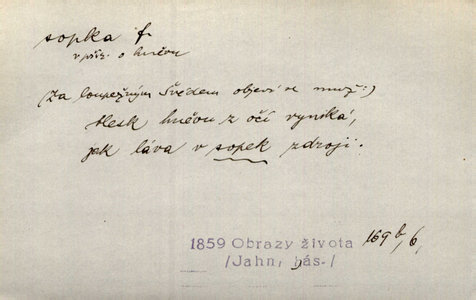 sopka f.
v přír. o hněvu
(Za loupežným Švédem objeví se muž:)
blesk hněvu z očí vyniká,
jak láva v sopek zdroji.
1859 Obrazy života 169 b, 6,
/Jahn, bás./